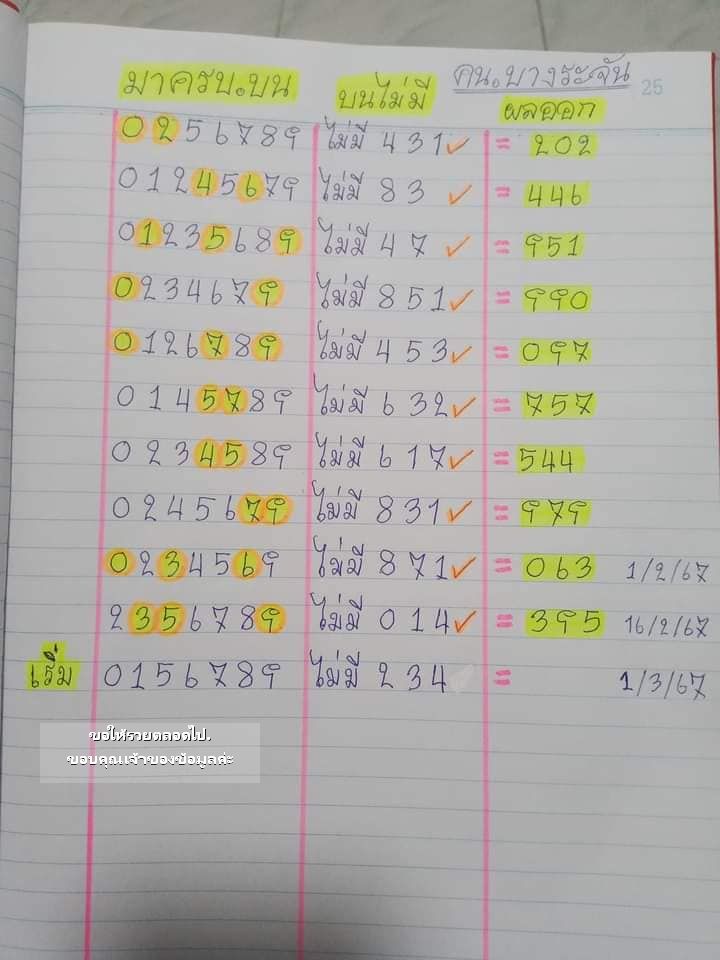 คน.บางระจัน
มาครบ.บน บนไม่มี ผลออก 25
0256789 ไม่มี 431 ✓ = 202
01245679 ไม่มี 83 ✓ = 446
01235689 ไม่มี 47 ✓ = 951
0234679 ไม่มี 851 ✓ = 990
0126789 ไม่มี 453 ✓ = 097
0145789 ไม่มี 632 ✓ = 757
0234589 ไม่มี 617 ✓ = 544
0245679 ไม่มี 831 ✓ = 979
0234569 ไม่มี 871 ✓ = 063 1/2/67
2356789 ไม่มี 014 ✓ = 395 16/2/67
เริ่ม 0156789 ไม่มี 234 = 1/3/67
ขอให้รวยตลอดไป.
ขอบคุณเจ้าของข้อมูลค่ะ